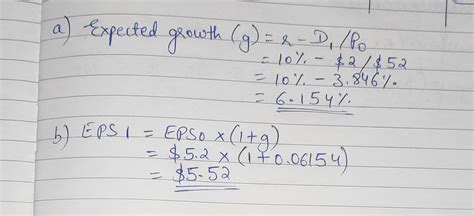 a) Expected growth (g) = r - D₁/P₀
= 10% - $2/$52
= 10% - 3.846%
= 6.154%
b) EPS1 = EPS0 x (1+g)
= $5.2 x (1+0.06154)
= $5.52